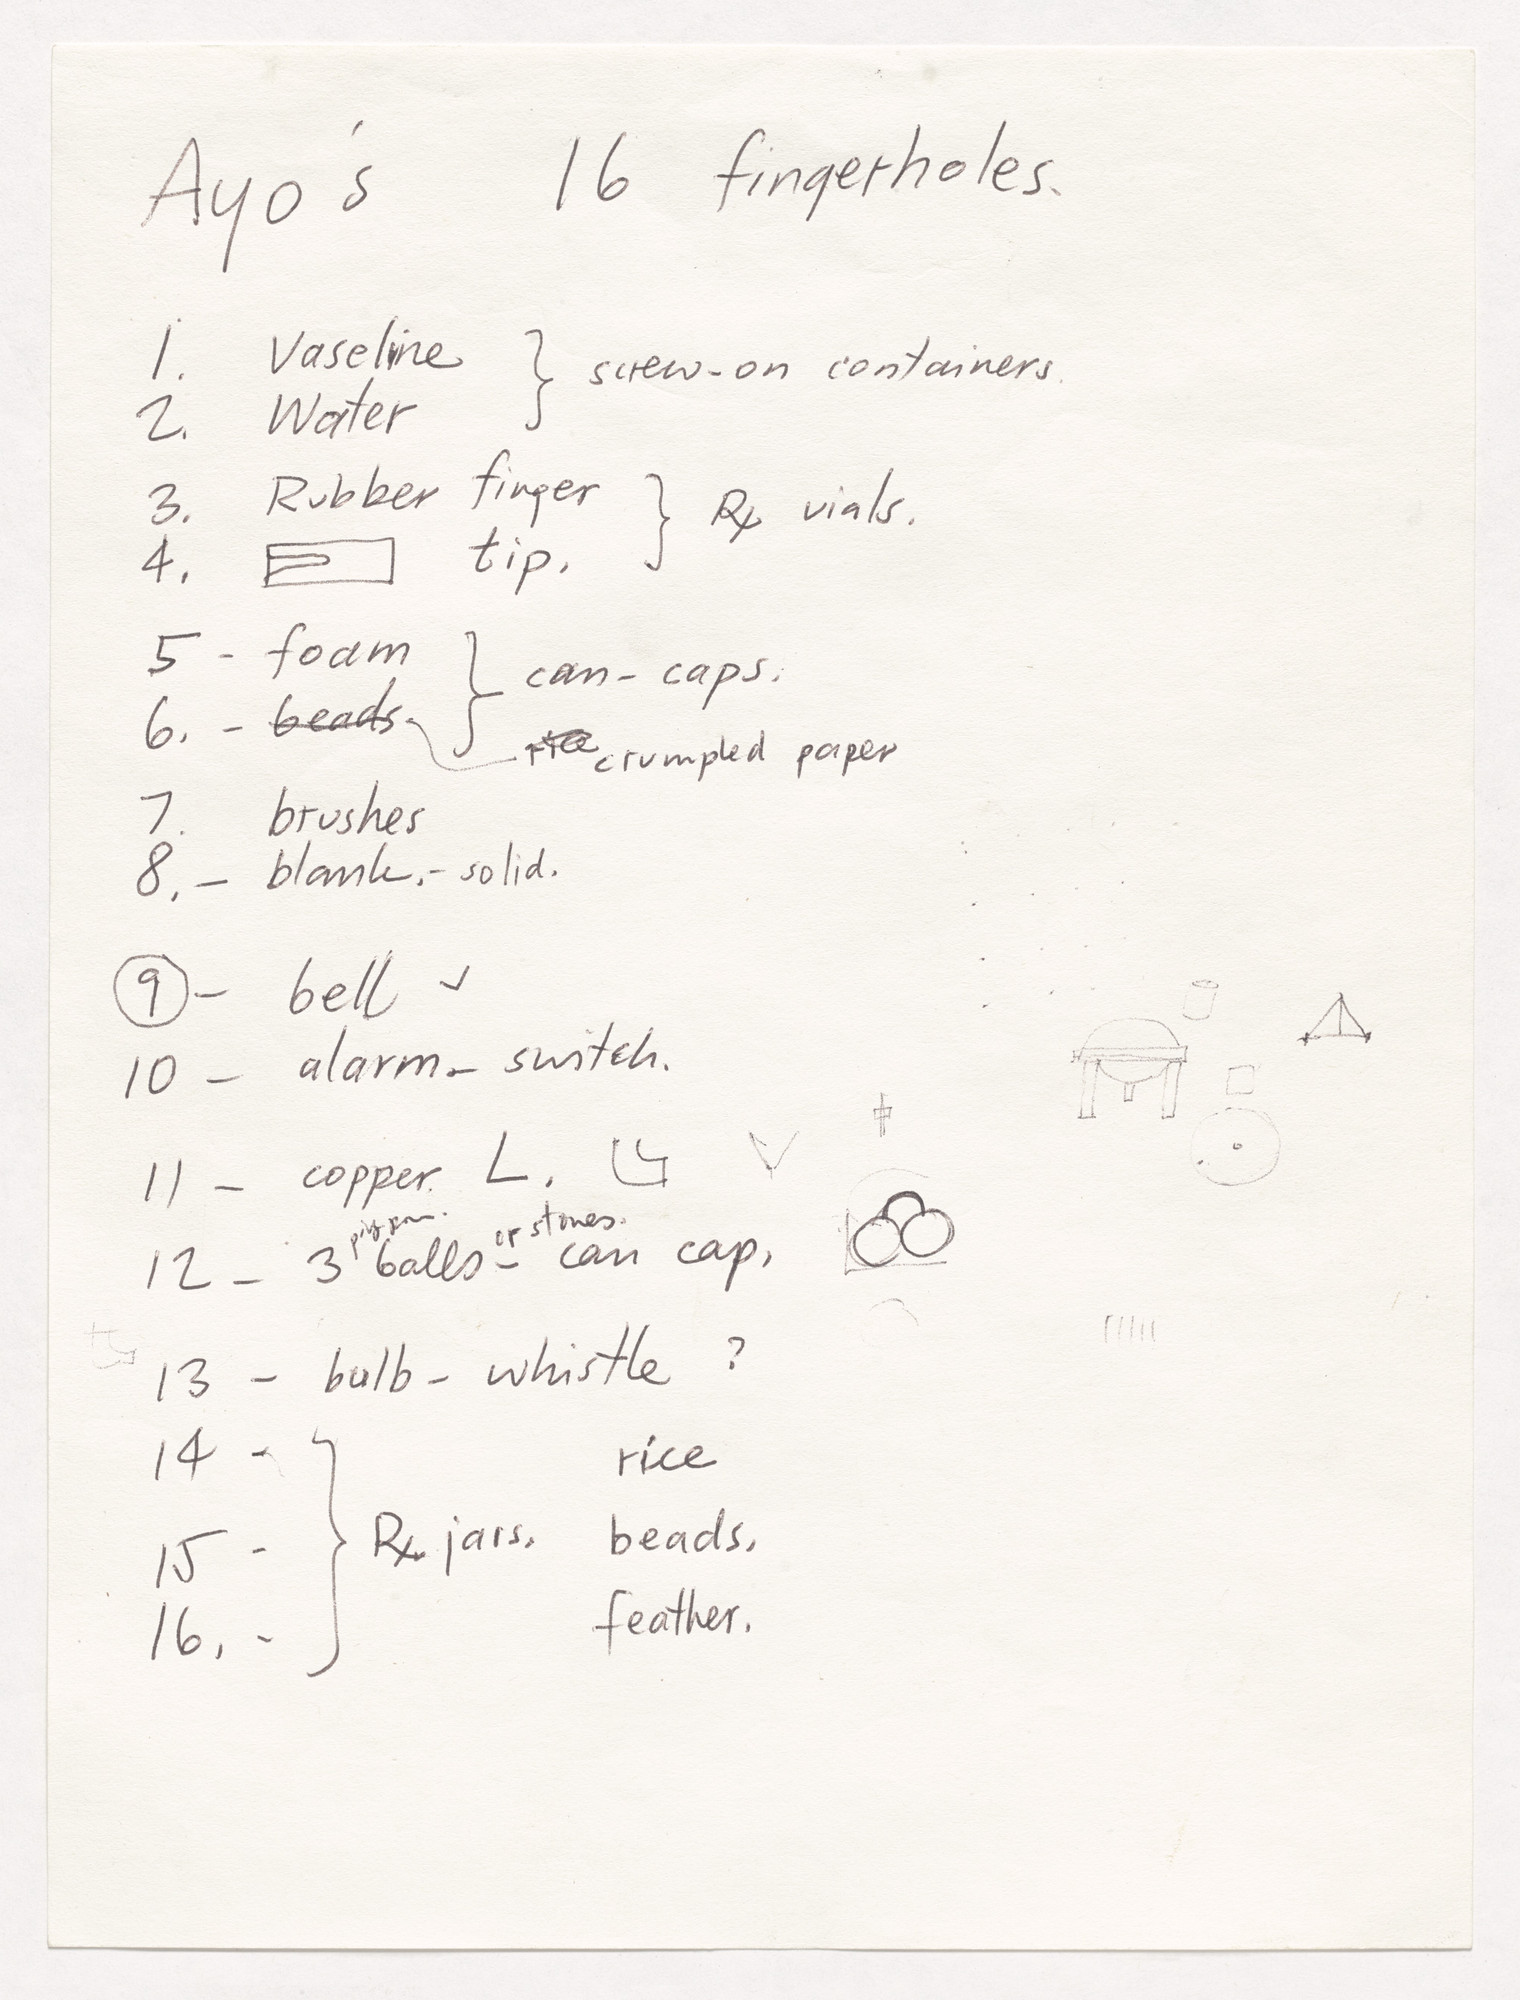 Ayo's 16 fingerholes.
1. Vaseline } screw-on containers.
2. Water
3. Rubber finger } Rx vials.
4. tip.
5 - foam } can-caps.
6. - beads
rice crumpled paper
7. brushes
8. - blank. - solid.
9 - bell ✓
10 - alarm - switch.
11 - copper. L.
or stones.
12 - 3 balls - can cap.
13 - bulb - whistle ?
14 - rice
15 - } Rx jars. beads.
16. - feather.